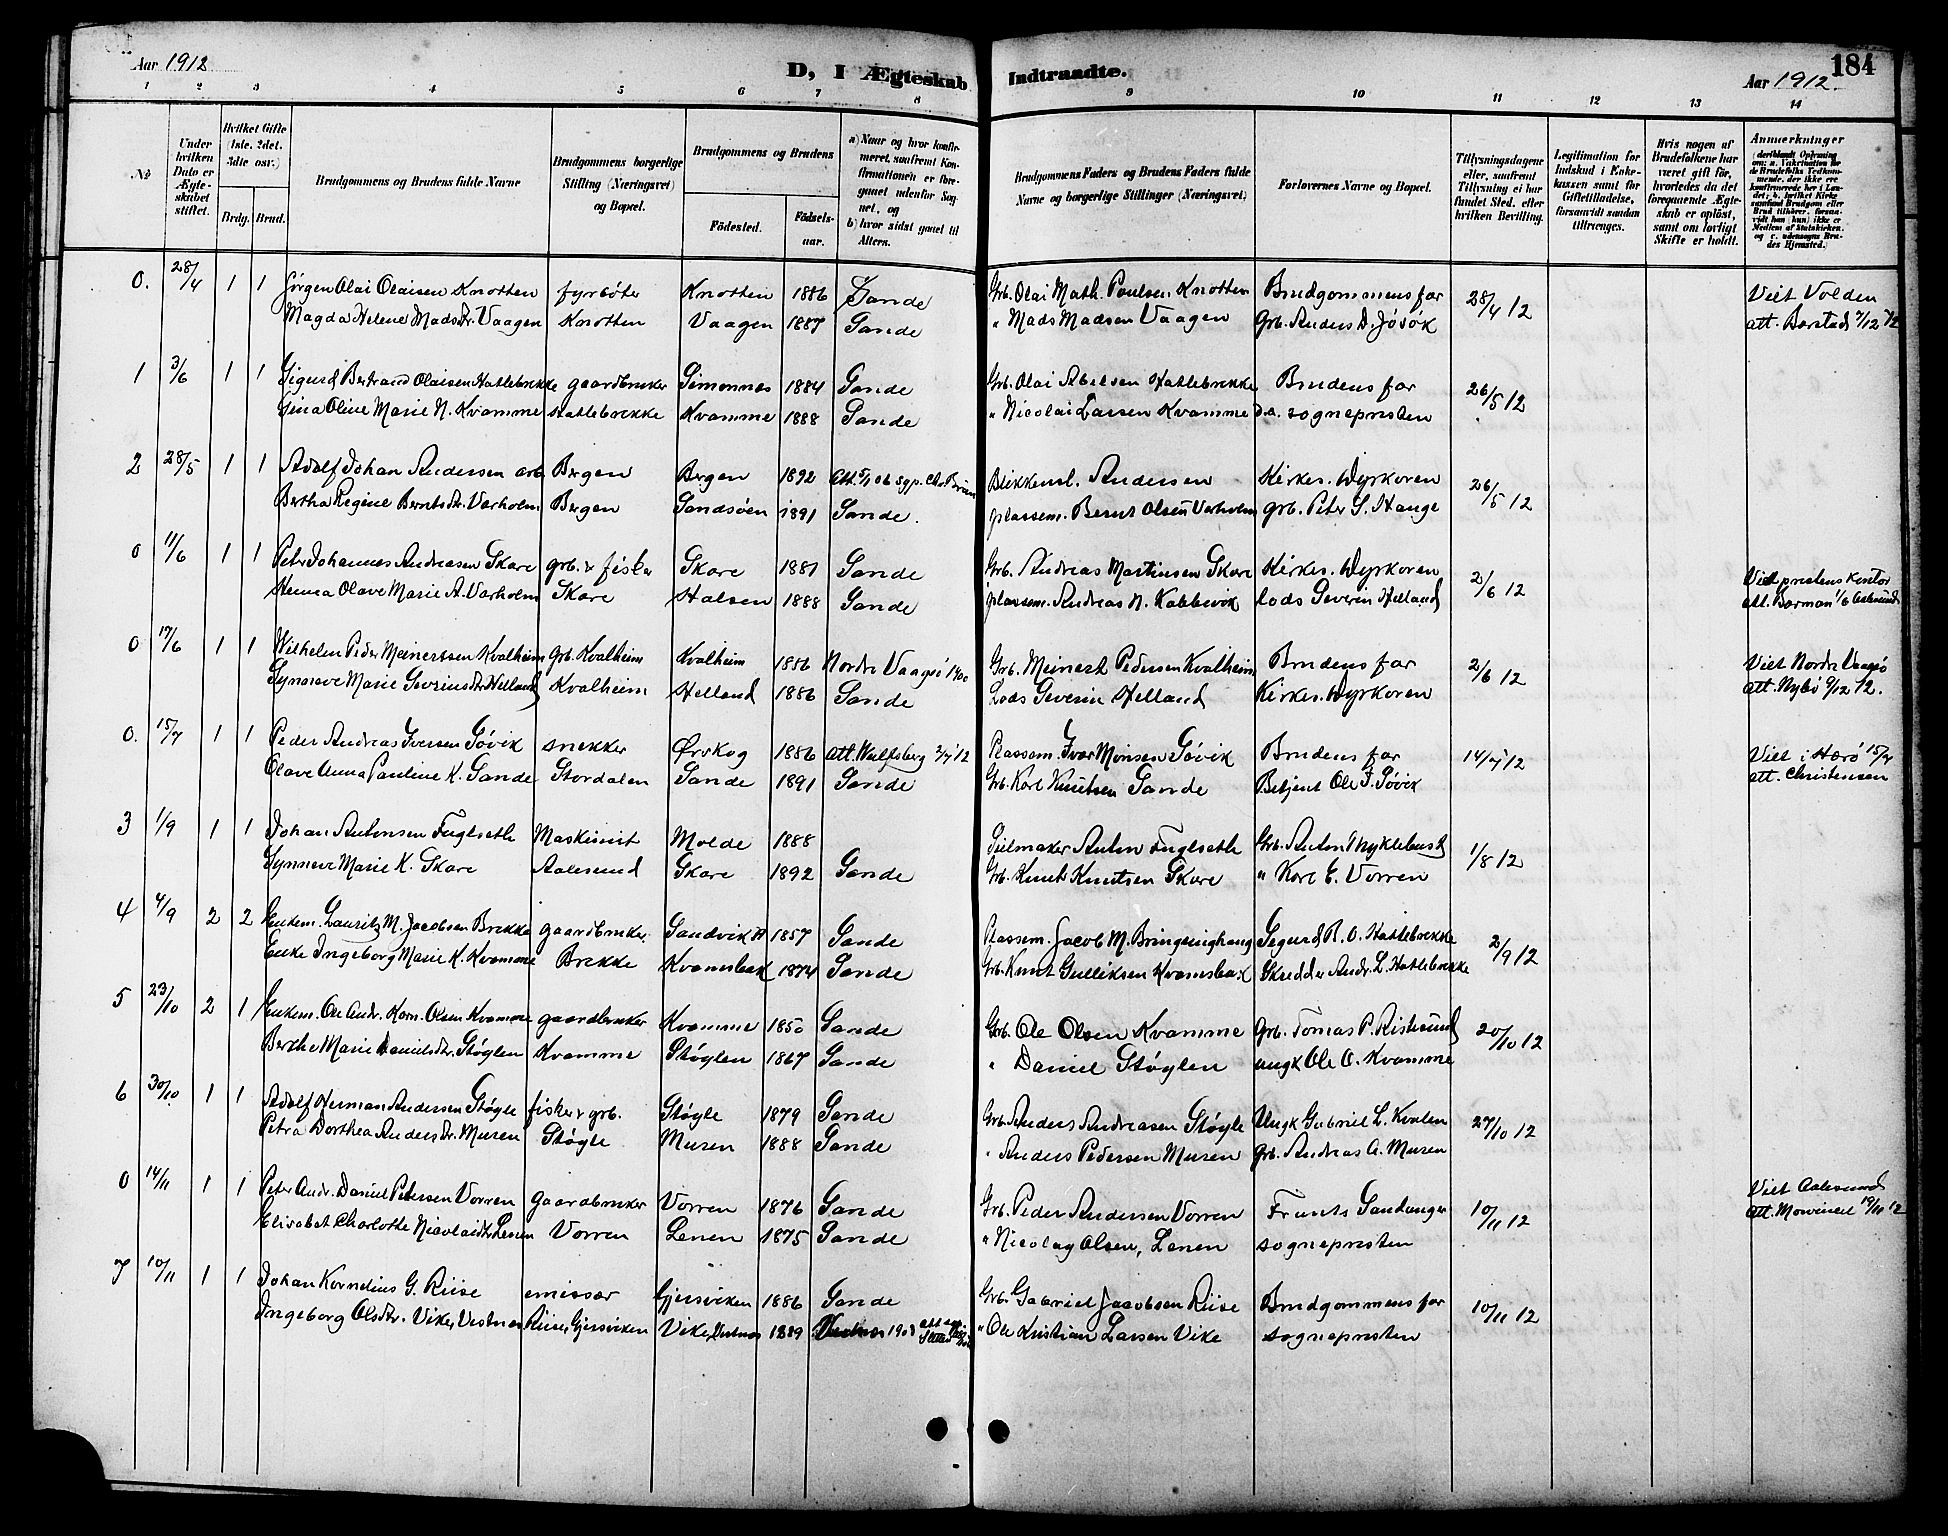 Aar 1912
D, I Ægteskab Indtraadte.
184
Aar 1912.
1 2 3 4 5 6 7 8 9 10 11 12 13 14
No
Under hvilken Dato er Ægteskabet stiftet.
Hvilket Gifte (1ste. 2det. 3die osv.)
Brdg. Brud.
Brudgommens og Brudens fulde Navne
Brudgommens borgerlige Stilling (Næringsvei) og Bopæl.
Brudgommens og Brudens
Födested.
Födselsaar.
a) Naar og hvor konfirmeret, saafremt Konfirmationen er foregaaet udenfor Sognet, og
b) hvor sidst gaaet til Alters.
Brudgommens Faders og Brudens Faders fulde Navne og borgerlige Stillinger (Næringsvei)
Forlovernes Navne og Bopæl.
Tillysningsdagene eller, saafremt Tillysning ei har fundet Sted, efter hvilken Bevilling.
Legitimation for Indskud i Enkekassen samt for Giftetilladelse, forsaavidt saadan tiltrænges.
Hvis nogen af Brudefolkene har været gift för, hvorledes da det foregaaende Ægteskab er oplöst, samt om lovligt Skifte er holdt.
Anmerkninger
0. 28/4 1 1 Jörgen Olai Olaisen Knotten fyrböter Knotten 1886 Sande Grb. Olai Math. Poulsen Knotten Brudgommens far 28/4 12 Viet Volden
Magda Helene Madsdtr. Vaagen Knotten Vaagen 1887 Sande " Mads Madsen Vaagen Grb. Anders D. Jøsøk att. Barstad 7/12 12
1 3/6 1 1 Sigurd Bertrand Olaisen Hatlebrekke gaardbruker Simonnes 1884 Sande Grb. Olai Abelsen Hatlebrekke Brudens far 26/5 12
Gina Oline Marie N. Kvamme Hatlebrekke Kvamme 1888 Sande " Nicolai Larsen Kvamme d.a. sognepresten
2 28/5 1 1 Adolf Johan Andersen arb. Bergen Bergen 1892 Att. 5/1 06 sgp. Blikkensl. Andersen Kirkes. Dyrkoren 26/5 12
Bertha Regine Berntsdtr. Varholm Bergen Sandsøen 1891 Sande. plassem. Bernt Olsen Varholm grb. Peter S. Hauge
0 11/6 1 1 Peter Johannes Andreasen Skare grb. & fisker Skare 1881 Sande Grb. Andreas Martinsen Skare Kirkes. Dyrkoren 2/6 12 Viet prestens kontor
Hanna Olave Marie A. Varholm Skare Halsen 1888 Sande plassem. Andreas N. Kobbevik Lods Severin Helland att. Barman 1/6 Aalesund
0 17/6 1 1 Wilhelm Peder Meinertsen Kvalheim grb. Kvalheim Kvalheim 1886 Nordre Vaagsö 1900 Grb. Meinert Pedersen Kvalheim Brudens far 2/6 12 Viet Nordre Vaagsö
Synneve Marie Severinsdtr. Helland Kvalheim Helland 1886 Sande Lods Severin Helland Kirkes. Dyrkoren att. Nybö 9/12 12.
0. 15/7 1 1 Peder Andreas Iversen Søvik snekker Ørskog 1886 Att. Wulfsberg 3/7 12 Plassem. Iver Monsen Søvik Brudens far 14/7 12 Viet i Herö 15/7
Olave Anna Pauline K. Sande Stordalen Sande 1891 Sande Grb. Karl Knutsen Sande Betjent Ole I. Søvik att. Christensen
3 1/9 1 1 Johan Antonsen Fuglseth Maskinist Molde 1888 Seilmaker Anton Fuglseth Grb. Anton Myklebust 1/8 12
Synneve Marie K. Skare Aalesund Skare 1892 Sande Grb. Knut Knutsen Skare " Karl E. Vorren
4 4/9 2 2 Enkem. Lauritz M. Jacobsen Brekke gaardbruker Sandvik H 1857 Sande Plassem. Jacob M. Bringsinghaug Segurd B. O. Hatlebrekke 2/9 12
Enke Ingeborg Marie K. Kvamme Brekke Kvamsbak 1874 Sande Grb. Knut Gulliksen Kvamsbak Skredder Andr. L. Hatlebrekke
5 23/10 2 1 Enkem. Ole Andr. Korn. Olsen Kvamme gaardbruker Kvamme 1850 Sande Grb. Ole Olsen Kvamme Grb. Tomas P. Ristesund 20/10 12
Berthe Marie Danielsdtr. Støylen Kvamme Støylen 1867 Sande " Daniel Støylen ungk Ole O. Kvamme
6 30/10 1 1 Adolf Herman Andersen Støyle fisker & grb. Støyle 1879 Sande Grb. Anders Andreasen Støyle Ungk Gabriel L. Kvalen 27/10 12
Petra Dorthea Andersdtr. Muren Støyle Muren 1888 Sande " Anders Pedersen Muren grb. Andreas A. Muren
0 14/11 1 1 Peter Andr. Daniel Petersen Vorren gaardbruker Vorren 1876 Sande Grb. Peder Andersen Vorren Frants Sandanger 10/11 12 Viet Aalesund
Elisabet Charlotte Nicolaidtr. Lenen Vorren Lenen 1875 Sande " Nicolay Olsen, Lenen sognepresten att. Mowinckel 19/11 12
7 10/11 1 1 Johan Kornelius G. Riise emissær Gjersviken 1886 Sande Grb. Gabriel Jacobsen Riise Brudgommens far 10/11 12
Ingeborg Olsdtr. Vike, Vestnes Riise, Gjersviken Vike, Vestnes 1889 Vestnes 1903 " Ole Kristian Larsen Vike sognepresten